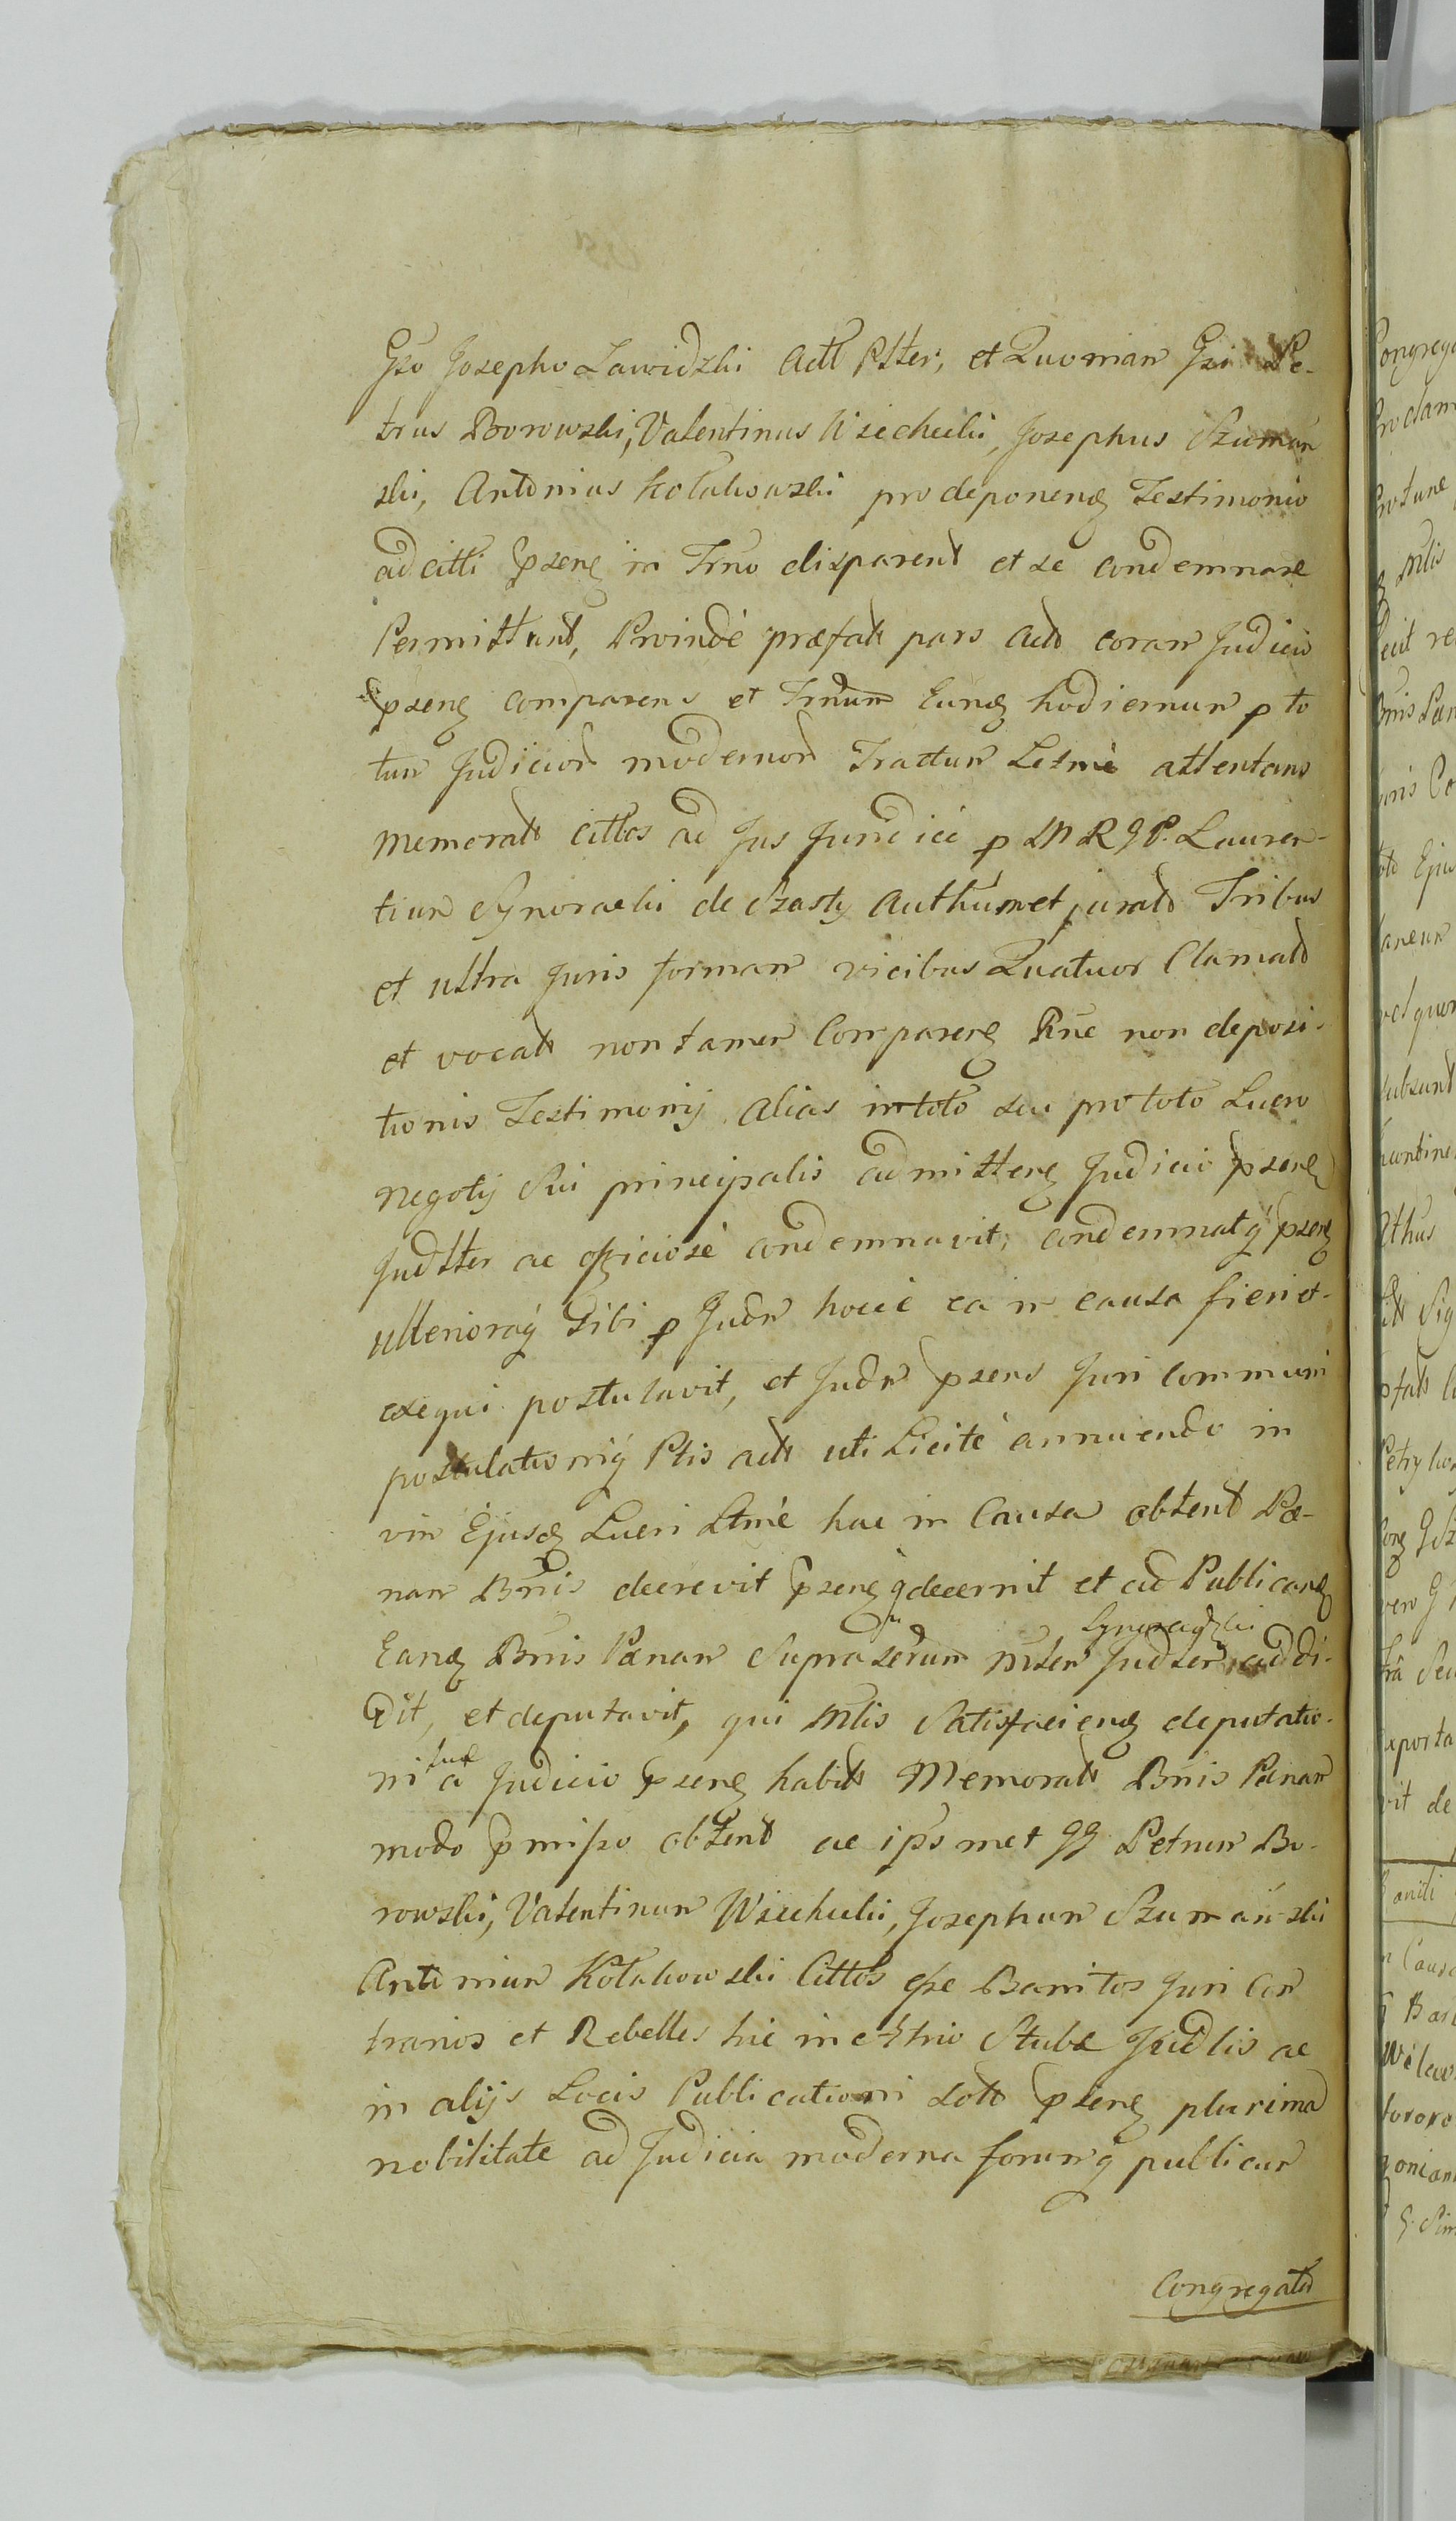 Gso Josepho Zawidzki Actt Ptter, et Quoniam Gsi Pe-
trus Borowski, Valentinus Wiechecki, Josephus Szumań
ski, Antonius Kołakowski pro deponend Testimonio
ad citti psenq in Trno disparent et se condemnare
Permittunt, Proindè præfatt pars actt coram Judicio
psenq comparens et Trnum Eunq hodiernum p to
tum Judicior modernor Tractum Letmè attentans
memoratt cittos ad Jus Juridicè p M R G P. Lauren-
tium Synoracki de Szasty Authum et juratt Tribus
et ultra Juris formam vicibus Quatuor Clamatt
et vocatt non tamen Comparenq Rne non deposi-
tionis Testimonij alias in toto seu pro toto Lucro
negotij Sui principalis admittenq Judicio psenq
Judtter ac officiosè condemnavit; condemnatq psenq
ulterioraq Sibi p Judm hocce ea in causa fieri et
exequi postulavit, et Judm psens Juri communi
postulationiq Ptis actt uti Licitè annuendo in
vim Ejusq Lucri Ltmè hac in Causa obtent Pæ-
nam Bnis decrevit psenq q decernit et ad Publicandq
Synoradzki
Eanq Bnis Pænam Suprasérum mlem Judtem addi-
dit, et deputavit, qui Mlis Satisfaciendq deputatio-
suæ
ni a Judicio psenq habitt Memoratt Bnis Pænam
modo pmisso obtent ac ipsmet GG Petrum Bo-
rowski, Valentinum Wiechecki, Josephum Szumański
Antonium Kołakowski Cittos esse Banitos Juri Con
trarios et Rebelles hic in Atrio Stubæ Judlis ac
in alijs Locis Publicationi solt psenq plurima
nobilitate ad Judicia moderna forumq publicum
Congregatt